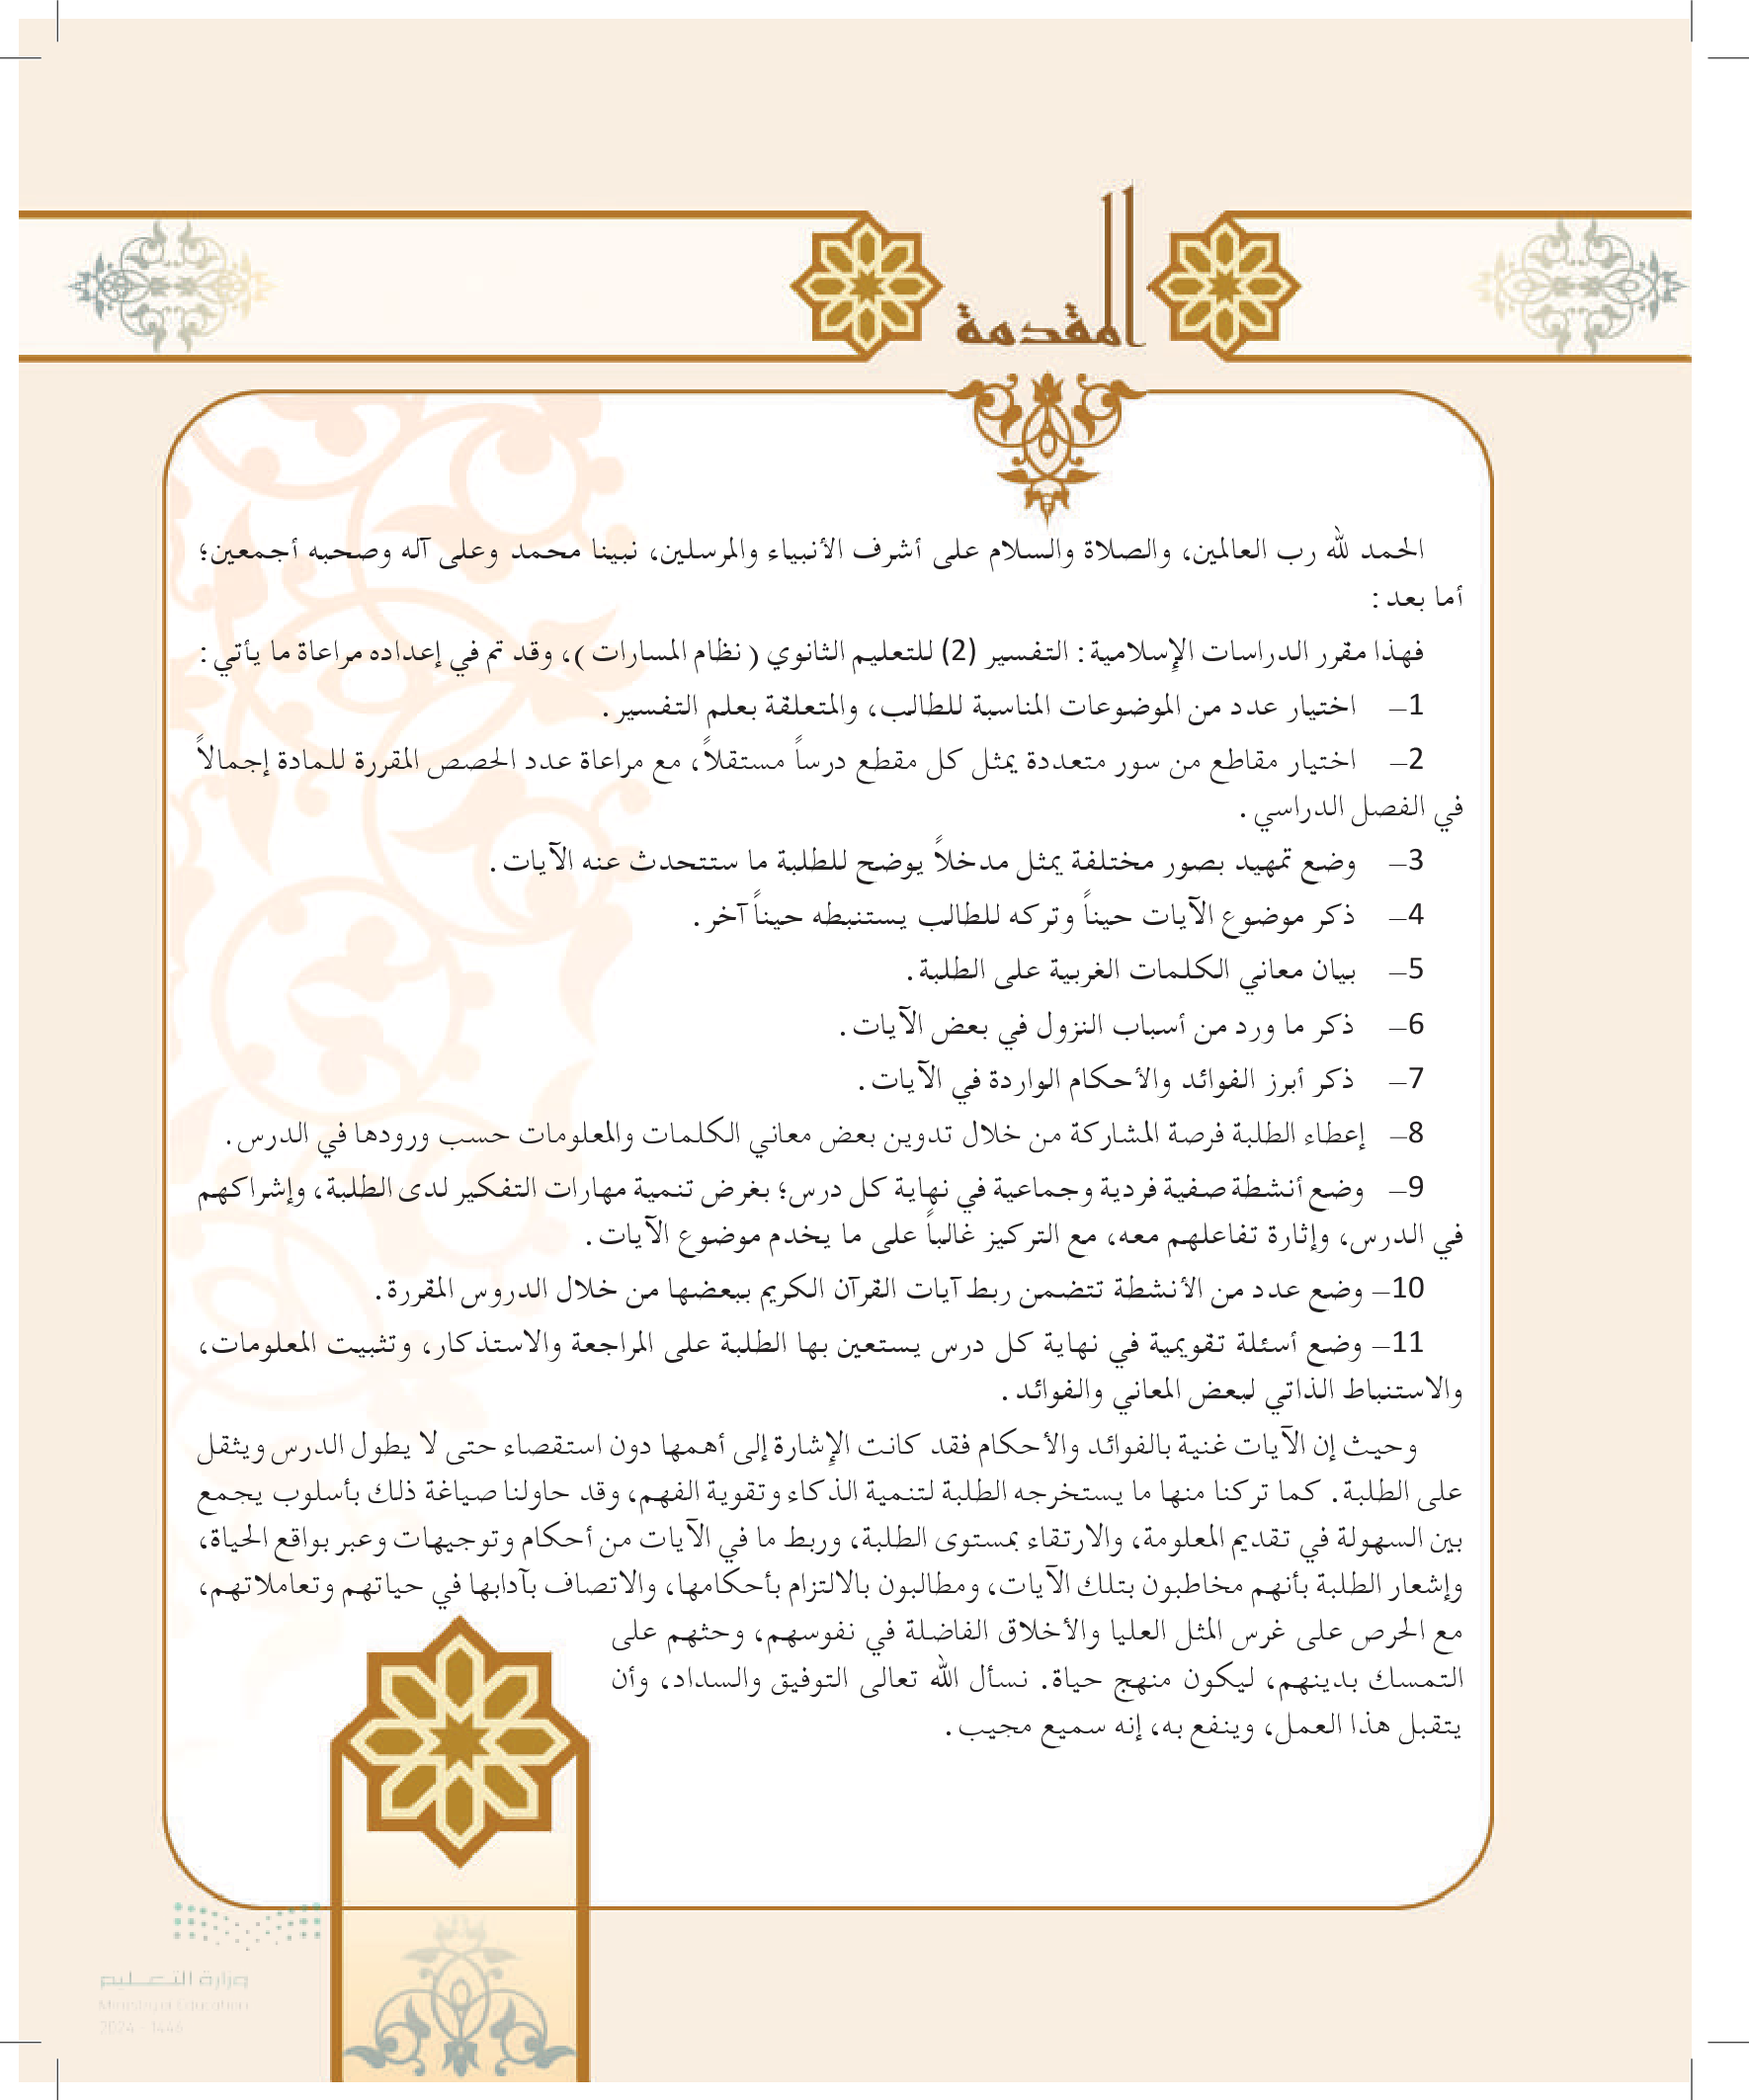 المقدمة
الحمد لله رب العالمين، والصلاة والسلام على أشرف الأنبياء والمرسلين، نبينا محمد وعلى آله وصحبه أجمعين؛
أما بعد:
فهذا مقرر الدراسات الإسلامية: التفسير (2) للتعليم الثانوي (نظام المسارات)، وقد تم في إعداده مراعاة ما يأتي:
1– اختيار عدد من الموضوعات المناسبة للطالب، والمتعلقة بعلم التفسير.
2– اختيار مقاطع من سور متعددة يمثل كل مقطع درساً مستقلاً، مع مراعاة عدد الحصص المقررة للمادة إجمالاً
في الفصل الدراسي.
3– وضع تمهيد بصور مختلفة يمثل مدخلاً يوضح للطلبة ما ستتحدث عنه الآيات.
4– ذكر موضوع الآيات حيناً وتركه للطالب يستنبطه حيناً آخر.
5– بيان معاني الكلمات الغريبة على الطلبة.
6– ذكر ما ورد من أسباب النزول في بعض الآيات.
7– ذكر أبرز الفوائد والأحكام الواردة في الآيات.
8– إعطاء الطلبة فرصة المشاركة من خلال تدوين بعض معاني الكلمات والمعلومات حسب ورودها في الدرس.
9– وضع أنشطة صفية فردية وجماعية في نهاية كل درس؛ بغرض تنمية مهارات التفكير لدى الطلبة، وإشراكهم
في الدرس، وإثارة تفاعلهم معه، مع التركيز غالباً على ما يخدم موضوع الآيات.
10– وضع عدد من الأنشطة تتضمن ربط آيات القرآن الكريم ببعضها من خلال الدروس المقررة.
11– وضع أسئلة تقويمية في نهاية كل درس يستعين بها الطلبة على المراجعة والاستذكار، وتثبيت المعلومات،
والاستنباط الذاتي لبعض المعاني والفوائد.
وحيث إن الآيات غنية بالفوائد والأحكام فقد كانت الإشارة إلى أهمها دون استقصاء حتى لا يطول الدرس ويثقل
على الطلبة. كما تركنا منها ما يستخرجه الطلبة لتنمية الذكاء وتقوية الفهم، وقد حاولنا صياغة ذلك بأسلوب يجمع
بين السهولة في تقديم المعلومة، والارتقاء بمستوى الطلبة، وربط ما في الآيات من أحكام وتوجيهات وعبر بواقع الحياة،
وإشعار الطلبة بأنهم مخاطبون بتلك الآيات، ومطالبون بالالتزام بأحكامها، والاتصاف بآدابها في حياتهم وتعاملاتهم،
مع الحرص على غرس المثل العليا والأخلاق الفاضلة في نفوسهم، وحثهم على
التمسك بدينهم، ليكون منهج حياة. نسأل الله تعالى التوفيق والسداد، وأن
يتقبل هذا العمل، وينفع به، إنه سميع مجيب.
وزارة التعليم
Ministry of Education
2024 - 1446